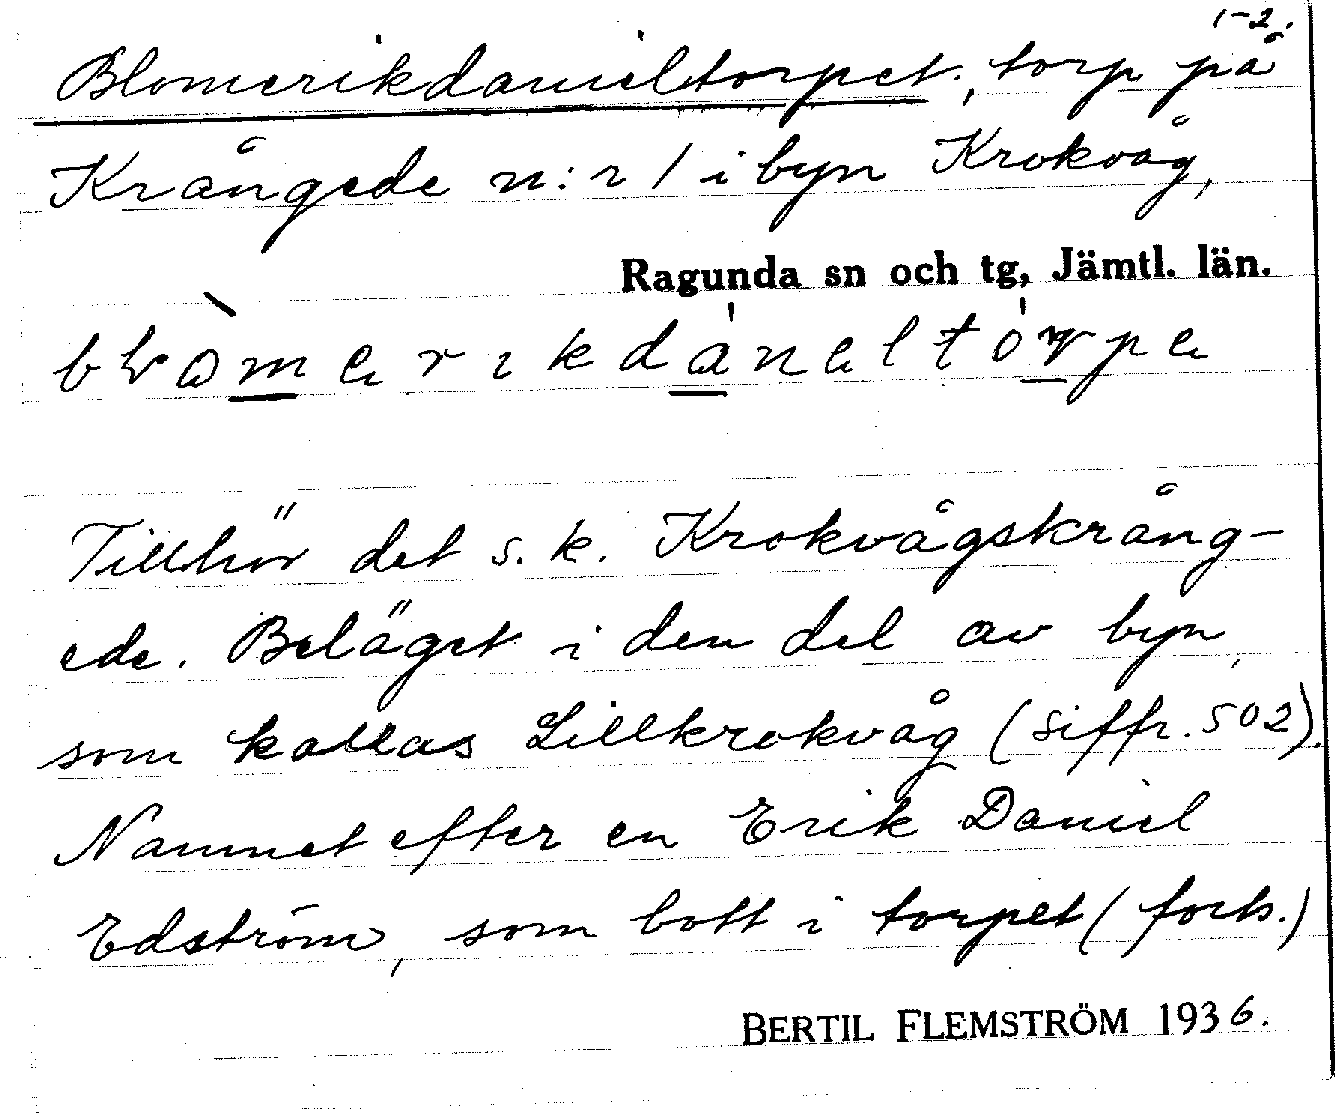 1-2.
Blomerikdanieltorpet; torp på
Krångede n:r 1 i byn Krokvåg,
Ragunda sn och tg, Jämtl. län.
Tillhör det s. k. Krokvågskrång-
ede. Beläget i den del av byn,
som kallas Lillkrokvåg (siffr. 502).
Namnet efter en Erik Daniel
Edström, som bott i torpet (forts.)
BERTIL FLEMSTRÖM 1936.